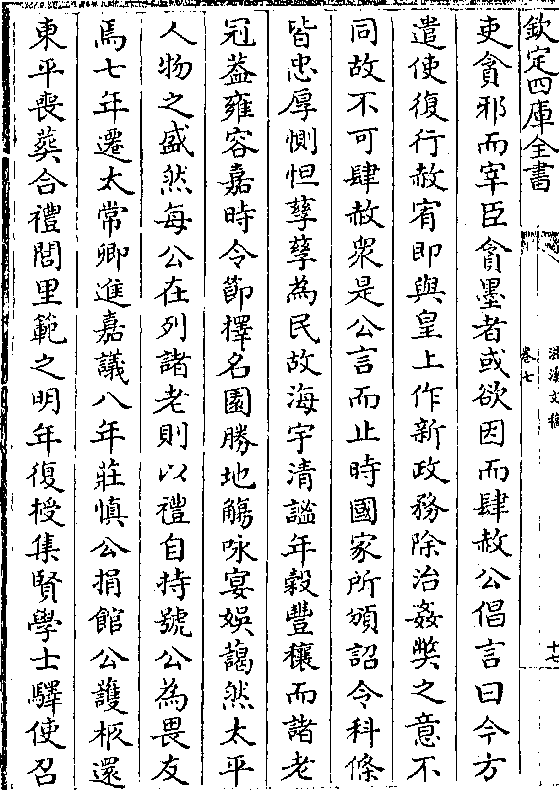 欽定四庫全書
滋溪文稿
卷七
十七
吏貪邪而宰臣貪墨者或欲因而肆赦公倡言曰今方
遣使復行赦宥即與皇上作新政務除治姦獘之意不
同故不可肆赦衆是公言而止時國家所頒詔令科條
皆忠厚惻怛孳孳為民故海宇清謐年穀豐穰而諸老
冠葢雍容嘉時令節擇名園勝地觴咏宴娛藹然太平
人物之盛然每公在列諸老則以禮自持號公為畏友
焉七年遷太常卿進嘉議八年莊慎公捐館公護柩還
東平喪葬合禮閭里範之明年復授集賢學士驛使召